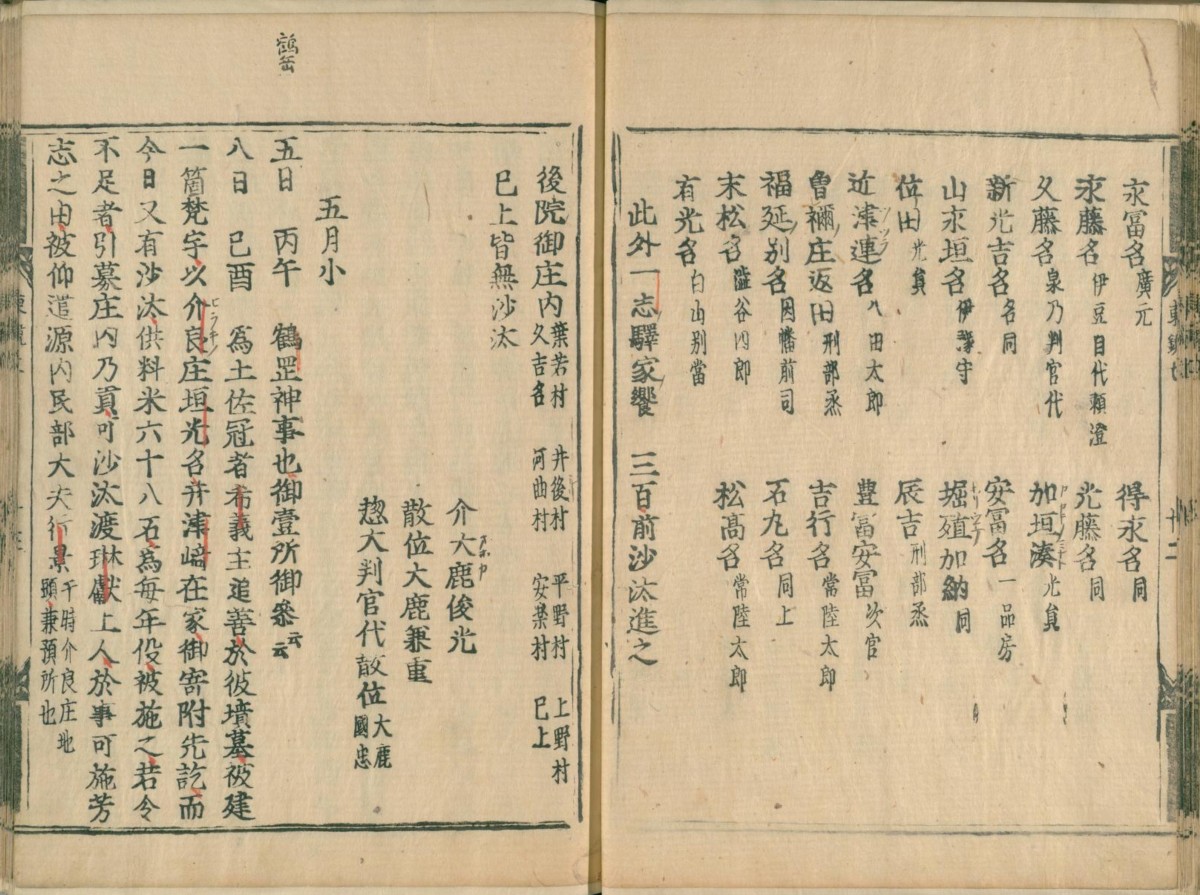 永冨名 廣元 得永名 同
永藤名 伊豆目代頼澄 光藤名 同
久藤名 泉乃判官代 加垣湊 光員
新光吉名 同 安冨名 一品房
山永垣名 伊勢守 堀殖加納 同
位田 光員 辰吉 刑部丞
近津連名 八田太郎 豊冨安冨 次官
曽禰庄返田 刑部丞 吉行名 常陸太郎
福延別名 因幡前司 石丸名 同上
末松名 澁谷四郎 松髙名 常陸太郎
有光名 白山別當
此外一志驛家饗 三百前沙汰進之
後院御庄内 葉若村 井後村 平野村 上野村
久吉名 河曲村 安楽村 已上
已上皆無沙汰
介大鹿俊光
散位大鹿兼重
惣大判官代散位 大鹿國忠
五月小
五日 丙午 鶴罡神事也御臺所御参云云
八日 己酉 為土佐冠者希義主追善於彼墳墓被建
一箇梵宇以介良庄垣光名并津﨑在家御寄附先訖而
今日又有沙汰供料米六十八石為毎年役被施之若令
不足者引募庄内乃貢可沙汰渡琳猷上人於事可施芳
志之由被仰遣源内民部大夫行景 于時介良庄地
頭兼預所也
鶴岳